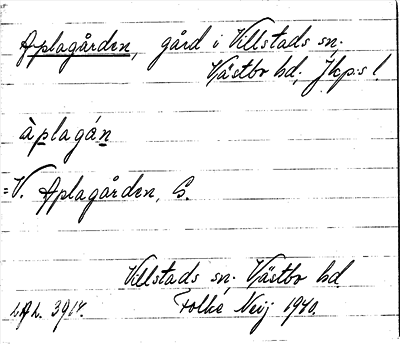 Aplagården, gård i Villstads sn.
Västbo hd, Jkp:s l.
àplagán
=V. Aplagården, C.
Villstads sn. Västbo hd
Folke Neij 1940.